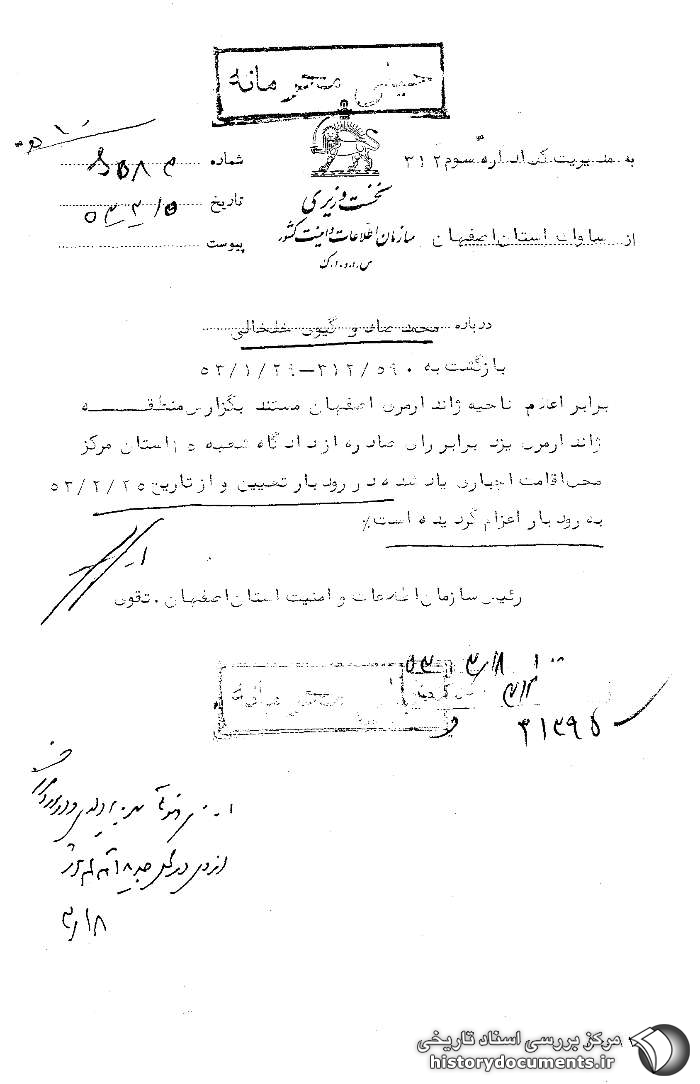 خیلی محرمانه
به مدیریت کل اداره سوم ۳۱۲
شماره
از ساواک استان اصفهان
نخست وزیری
سازمان اطلاعات و امنیت کشور
س.ا.و.ا.ک
تاریخ ۵۳/۳/۵
پیوست
درباره محمد صادق گیوی خلخالی
بازگشت به ۳۱۲/۵۹۰-۵۳/۱/۲۹
برابر اعلام ناحیه ژاندارمری اصفهان مستند بگزارش منطقه
ژاندارمری یزد برابر رای صادره از دادگاه شعبه ۵ استان مرکز
محل اقامت اجباری یاد شده در رودبار تعیین و از تاریخ ۵۳/۲/۲۵
به رودبار اعزام گردیده است
رئیس سازمان اطلاعات و امنیت استان اصفهان . تقوی
۵۳/۳/۸
خیلی محرمانه
۳۱۳۹۵
۳/۱۸
مرکز بررسی اسناد تاریخی
historydocuments.ir